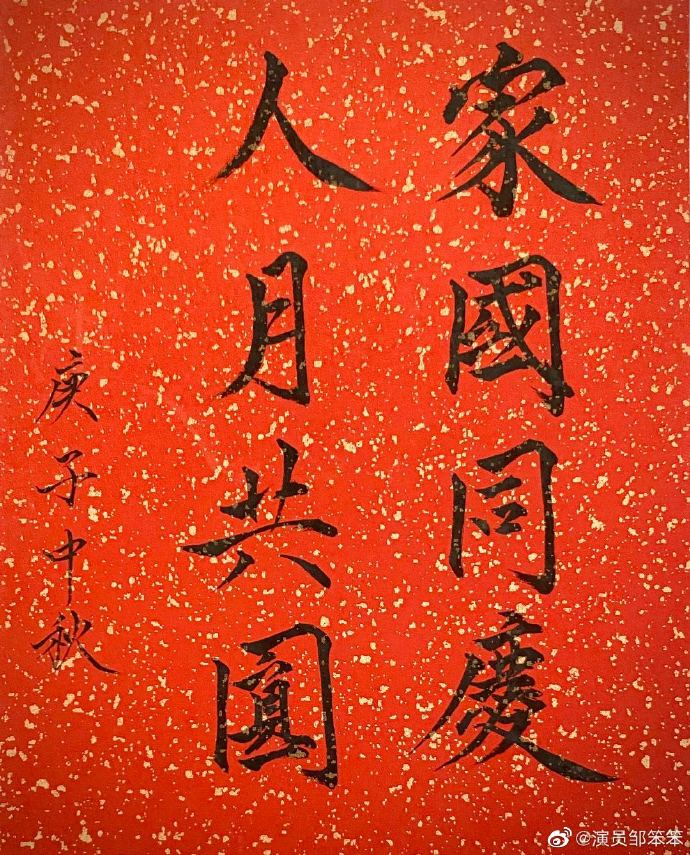 家國同慶
人月共圓
庚子中秋
@演员邹笨笨